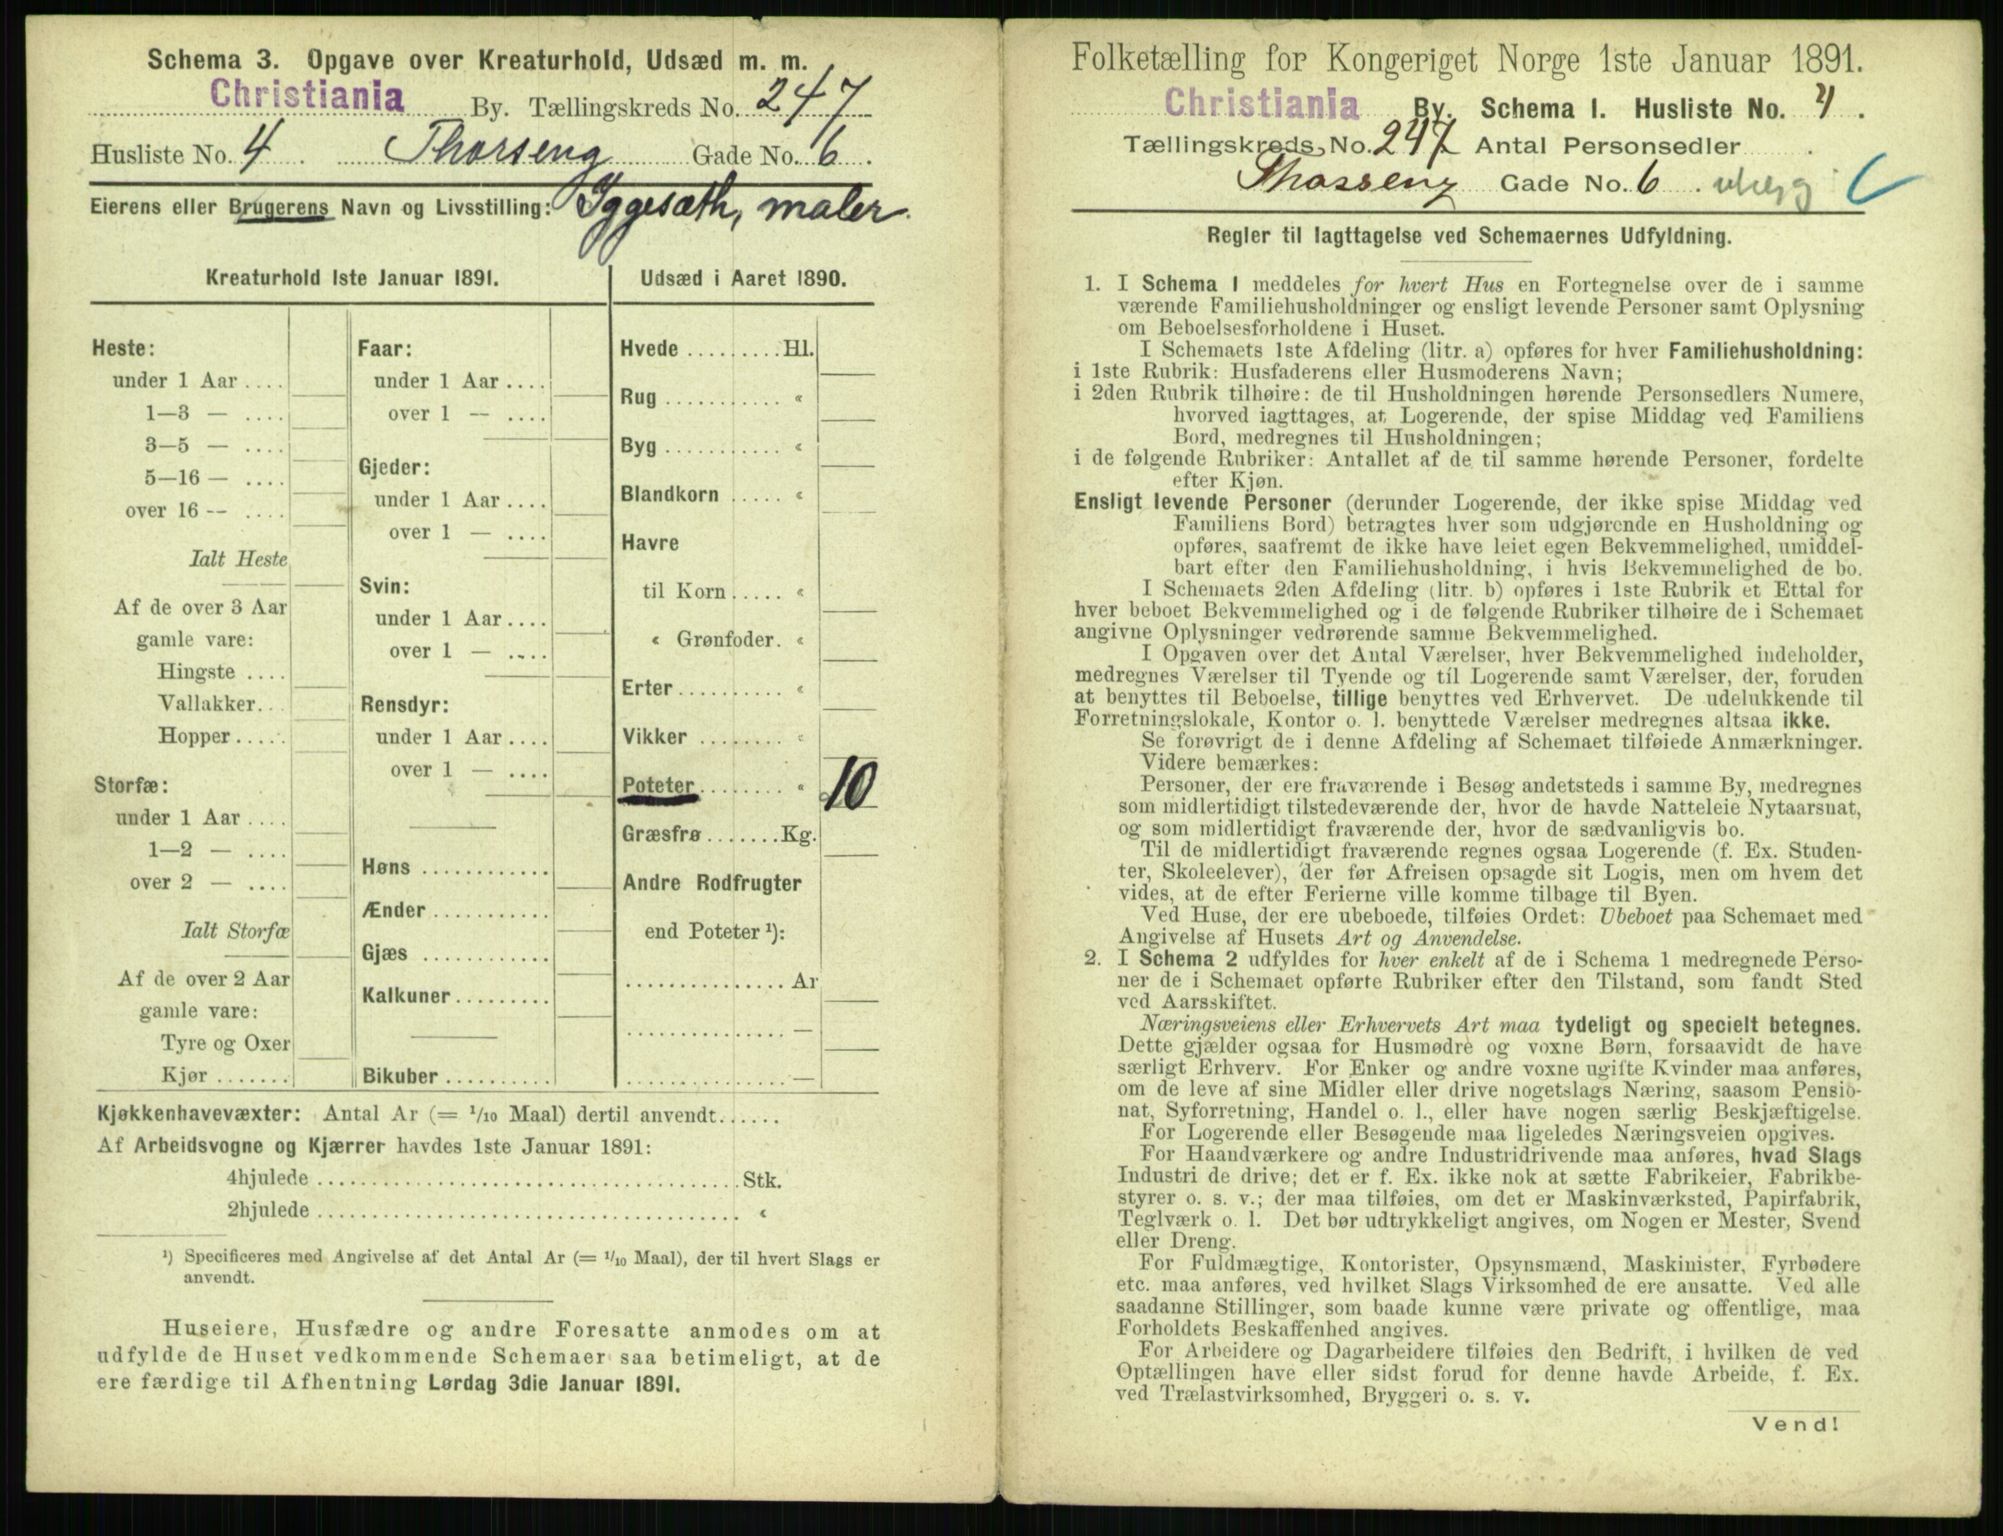 Schema 3. Opgave over Kreaturhold, Udsæd m. m.
Christiania By. Tællingskreds No. 247
Husliste No. 4 Thorseng Gade No. 6.
Eierens eller Brugerens Navn og Livsstilling: Iggesæth, maler.
Kreaturhold 1ste Januar 1891.
Heste:
under 1 Aar....
1—3 — ....
3—5 — ....
5—16 — ....
over 16 -- ....
Ialt Heste
Af de over 3 Aar
gamle vare:
Hingste ....
Vallakker...
Hopper.....
Storfæ:
under 1 Aar....
1—2 — ....
over 2 — ....
Ialt Storfæ
Af de over 2 Aar
gamle vare:
Tyre og Oxer
Kjør.......
Faar:
under 1 Aar....
over 1 — ....
Gjeder:
under 1 Aar....
over 1 — ....
Svin:
under 1 Aar....
over 1 — ....
Rensdyr:
under 1 Aar....
over 1 — ....
Høns............
Ænder...........
Gjæs............
Kalkuner.........
Bikuber..........
Udsæd i Aaret 1890.
Hvede.........Hl.
Rug........... «
Byg........... «
Blandkorn..... «
Havre
til Korn..... «
« Grønfoder. «
Erter.......... «
Vikker........ «
Poteter........ « 10
Græsfrø.......Kg.
Andre Rodfrugter
end Poteter ¹):
...............Ar
...............—
...............—
Kjøkkenhavevæxter: Antal Ar (= 1/10 Maal) dertil anvendt......
Af Arbeidsvogne og Kjærrer havdes 1ste Januar 1891:
4hjulede......................................Stk.
2hjulede...................................... «
¹) Specificeres med Angivelse af det Antal Ar (= 1/10 Maal), der til hvert Slags er
anvendt.
Huseiere, Husfædre og andre Foresatte anmodes om at
udfylde de Huset vedkommende Schemaer saa betimeligt, at de
ere færdige til Afhentning Lørdag 3die Januar 1891.
Folketælling for Kongeriget Norge 1ste Januar 1891.
Christiania By. Schema I. Husliste No. 4.
Tællingskreds No. 247 Antal Personsedler .
Thorseng Gade No. 6. C
Regler til Iagttagelse ved Schemaernes Udfyldning.
1. I Schema I meddeles for hvert Hus en Fortegnelse over de i samme
værende Familiehusholdninger og ensligt levende Personer samt Oplysning
om Beboelsesforholdene i Huset.
I Schemaets 1ste Afdeling (litr. a) opføres for hver Familiehusholdning:
i 1ste Rubrik: Husfaderens eller Husmoderens Navn;
i 2den Rubrik tilhøire: de til Husholdningen hørende Personsedlers Numere,
hvorved iagttages, at Logerende, der spise Middag ved Familiens
Bord, medregnes til Husholdningen;
i de følgende Rubriker: Antallet af de til samme hørende Personer, fordelte
efter Kjøn.
Ensligt levende Personer (derunder Logerende, der ikke spise Middag ved
Familiens Bord) betragtes hver som udgjørende en Husholdning og
opføres, saafremt de ikke have leiet egen Bekvemmelighed, umiddel-
bart efter den Familiehusholdning, i hvis Bekvemmelighed de bo.
I Schemaets 2den Afdeling (litr. b) opføres i 1ste Rubrik et Ettal for
hver beboet Bekvemmelighed og i de følgende Rubriker tilhøire de i Schemaet
angivne Oplysninger vedrørende samme Bekvemmelighed.
I Opgaven over det Antal Værelser, hver Bekvemmelighed indeholder,
medregnes Værelser til Tyende og til Logerende samt Værelser, der, foruden
at benyttes til Beboelse, tillige benyttes ved Erhvervet. De udelukkende til
Forretningslokale, Kontor o. l. benyttede Værelser medregnes altsaa ikke.
Se forøvrigt de i denne Afdeling af Schemaet tilføiede Anmærkninger.
Videre bemærkes:
Personer, der ere fraværende i Besøg andetsteds i samme By, medregnes
som midlertidigt tilstedeværende der, hvor de havde Natteleie Nytaarsnat,
og som midlertidigt fraværende der, hvor de sædvanligvis bo.
Til de midlertidigt fraværende regnes ogsaa Logerende (f. Ex. Studen-
ter, Skoleelever), der før Afreisen opsagde sit Logis, men om hvem det
vides, at de efter Ferierne ville komme tilbage til Byen.
Ved Huse, der ere ubeboede, tilføies Ordet: Ubeboet paa Schemaet med
Angivelse af Husets Art og Anvendelse.
2. I Schema 2 udfyldes for hver enkelt af de i Schema 1 medregnede Perso-
ner de i Schemaet opførte Rubriker efter den Tilstand, som fandt Sted
ved Aarsskiftet.
Næringsveiens eller Erhvervets Art maa tydeligt og specielt betegnes.
Dette gjælder ogsaa for Husmødre og voxne Børn, forsaavidt de have
særligt Erhverv. For Enker og andre voxne ugifte Kvinder maa anføres,
om de leve af sine Midler eller drive nogetslags Næring, saasom Pensio-
nat, Syforretning, Handel o. l., eller have nogen særlig Beskjæftigelse.
For Logerende eller Besøgende maa ligeledes Næringsveien opgives.
For Haandværkere og andre Industridrivende maa anføres, hvad Slags
Industri de drive; det er f. Ex. ikke nok at sætte Fabrikeier, Fabrikbe-
styrer o. s. v.; der maa tilføies, om det er Maskinværksted, Papirfabrik,
Teglværk o. l. Det bør udtrykkeligt angives, om Nogen er Mester, Svend
eller Dreng.
For Fuldmægtige, Kontorister, Opsynsmænd, Maskinister, Fyrbødere
etc. maa anføres, ved hvilket Slags Virksomhed de ere ansatte. Ved alle
saadanne Stillinger, som baade kunne være private og offentlige, maa
Forholdets Beskaffenhed angives.
For Arbeidere og Dagarbeidere tilføies den Bedrift, i hvilken de ved
Optællingen have eller sidst forud for denne havde Arbeide, f. Ex.
ved Trælastvirksomhed, Bryggeri o. s. v.
Vend!